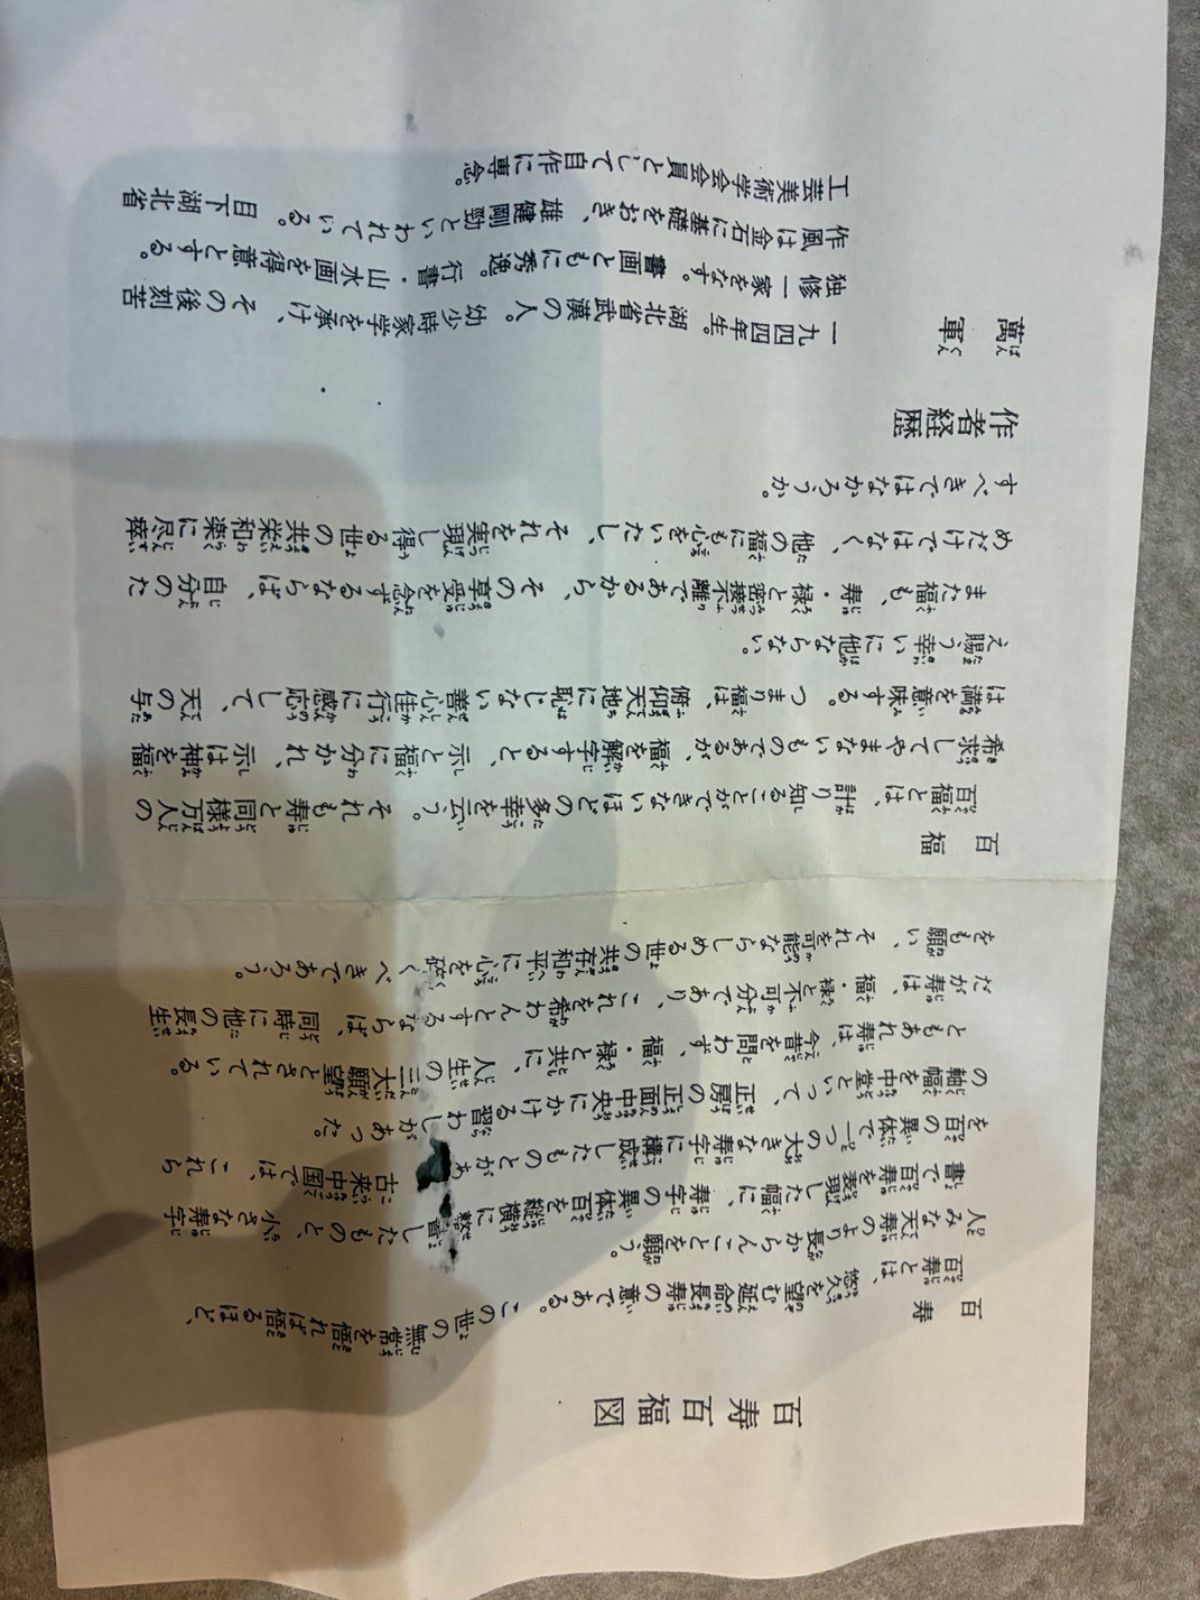 百寿百福図
百寿
百寿とは、悠久を望む延命長寿の意である。この世の無常を悟れば悟るほど、
人みな天寿のより長からんことを願う。
書で百寿を表現した幅に、寿字の異体百を縦横に整書したものと、小さな寿字
を百の異体で一つの大きな寿字に構成したものとがあ 古来中国では、これら
の軸幅を中堂といって、正房の正面中央にかける習わしがあった。
ともあれ寿は、今昔を問わず、福・禄と共に、人生の三大願望とされている。
だが寿は、福・禄と不可分であり、これを希わんとするならば、同時に他の長生
をも願い、それを可能ならしめる世の共存和平に心を砕くべきであろう。
百福
百福とは、計り知ることができないほどの多幸を云う。それも寿と同様万人の
希求してやまないものであるが、福を解字すると、示と福に分かれ、示は神を福
は満を意味する。つまり福は、俯仰天地に恥じない善心佳行に感応して、天の与
え賜う幸いに他ならない。
また福も、寿・禄と密接不離であるから、その享受を念ずるならば、自分のた
めだけではなく、他の福にも心をいたし、それを実現し得る世の共栄和楽に尽瘁
すべきではなかろうか。
作者経歴
萬軍
ばんくん
一九四四年生。湖北省武漢の人。幼少時家学を承け、その後刻苦
独修一家をなす。書画ともに秀逸。行書・山水画を得意とする。
作風は金石に基礎をおき、雄健剛勁といわれている。目下湖北省
工芸美術学会会員として自作に専念。